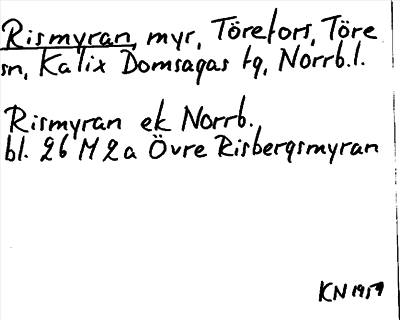 Rismyran, myr, Törefors, Töre
sn, Kalix Domsagas tg, Norrb.l.
Rismyran ek Norrb.
bl. 26 M 2a Övre Risbergsmyran
KN 1959